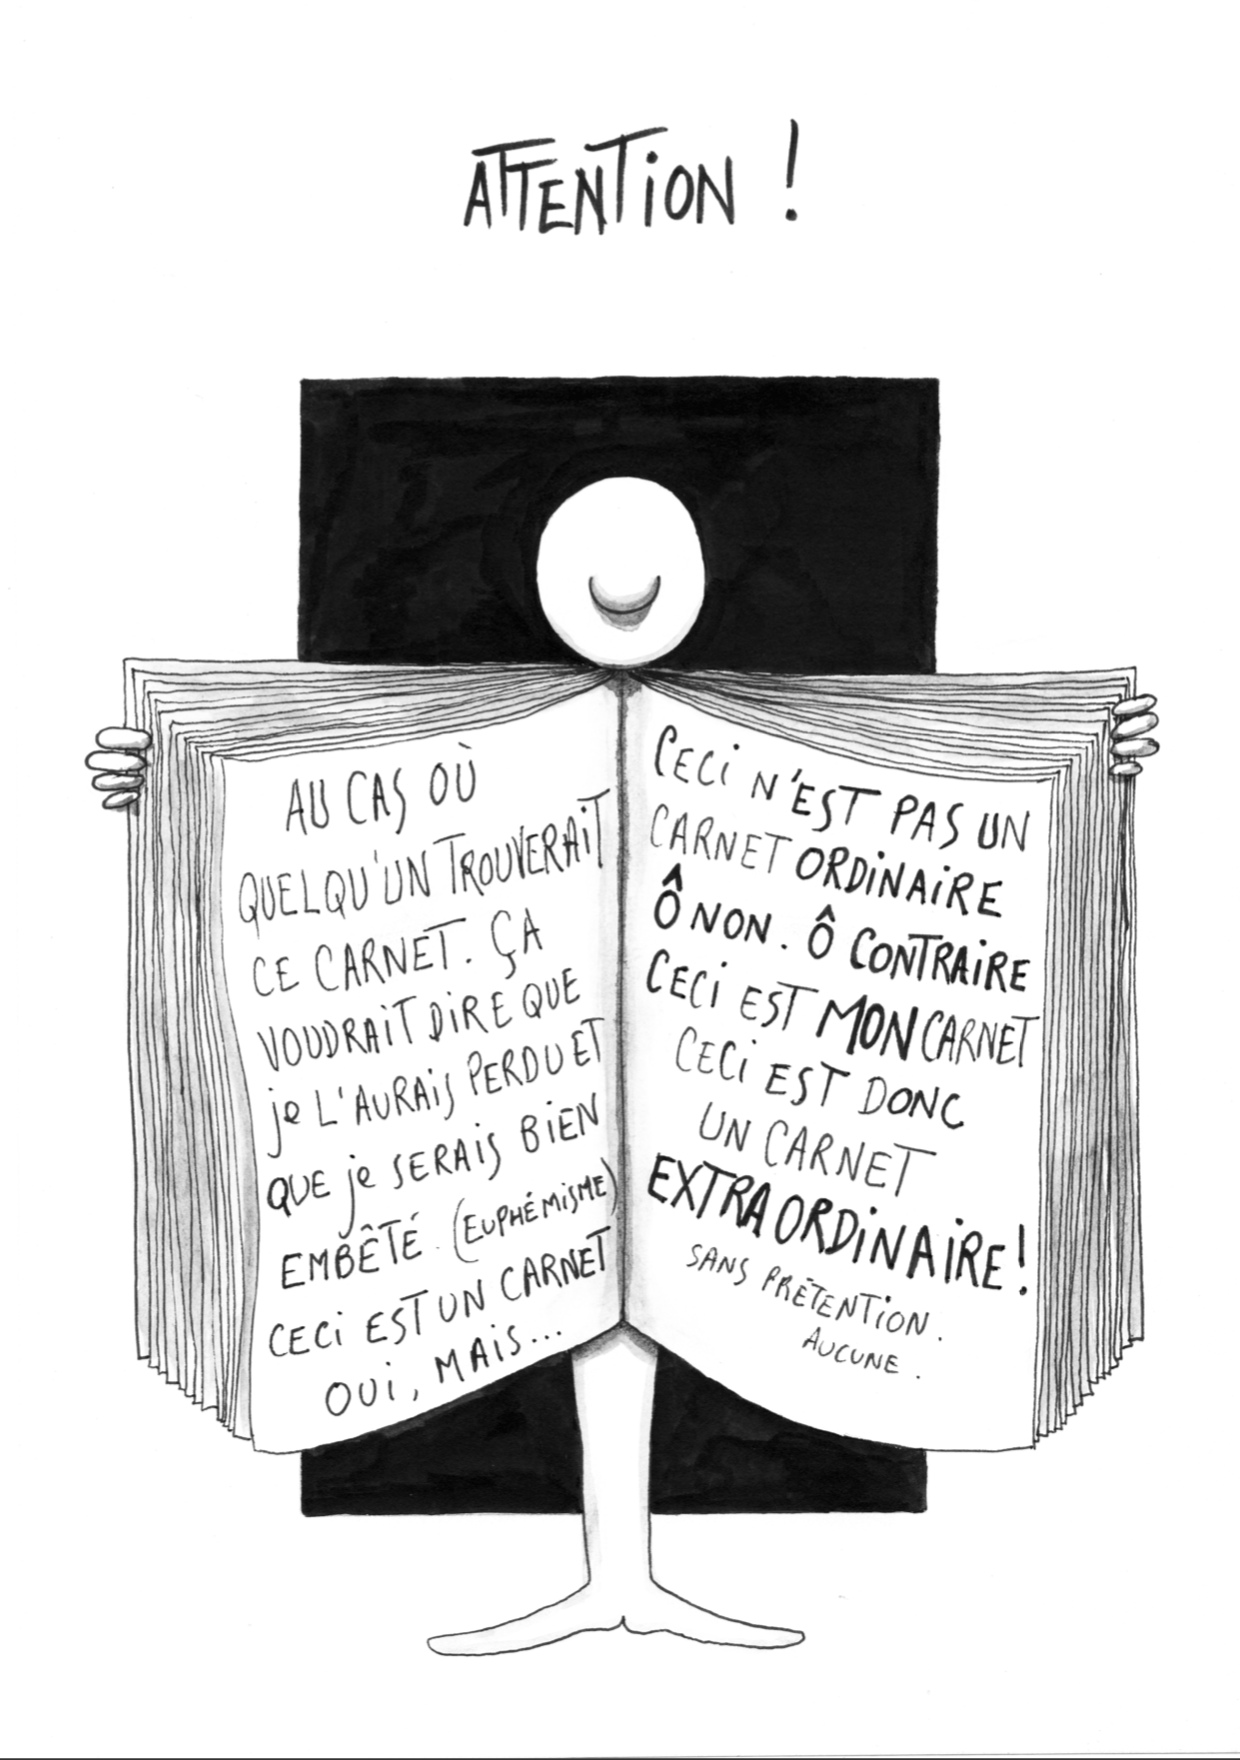 ATTENTION !
AU CAS OÙ
QUELQU'UN TROUVERAIT
CE CARNET. ÇA
VOUDRAIT DIRE QUE
je L'AURAIS PERDU ET
QUE je SERAIS BIEN
EMBÊTÉ. (EUPHÉMISME)
CECI EST UN CARNET
OUI, MAIS...
CECI N'EST PAS UN
CARNET ORDINAIRE
Ô NON. Ô CONTRAIRE
CECI EST MON CARNET
CECI EST DONC
UN CARNET
EXTRAORDINAIRE!
SANS PRÉTENTION.
AUCUNE.